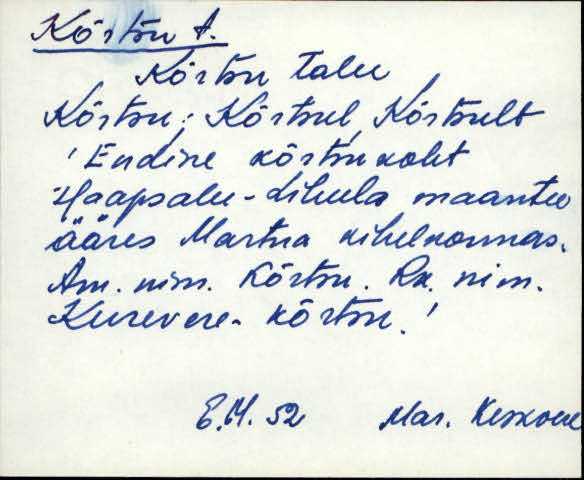 Kõrtsu t.
Kõrtsu talu
Kõrtsu: Kõrtsul, Kõrtsult
'Endine kõrtsukoht
Haapsalu-Lihula maantee
ääres Martna kihelkonnas.
Am. nim. Kõrtsu. Rx. nim.
Kurevere-kõrtsu!
E.M. 52 Mar. Keskvere